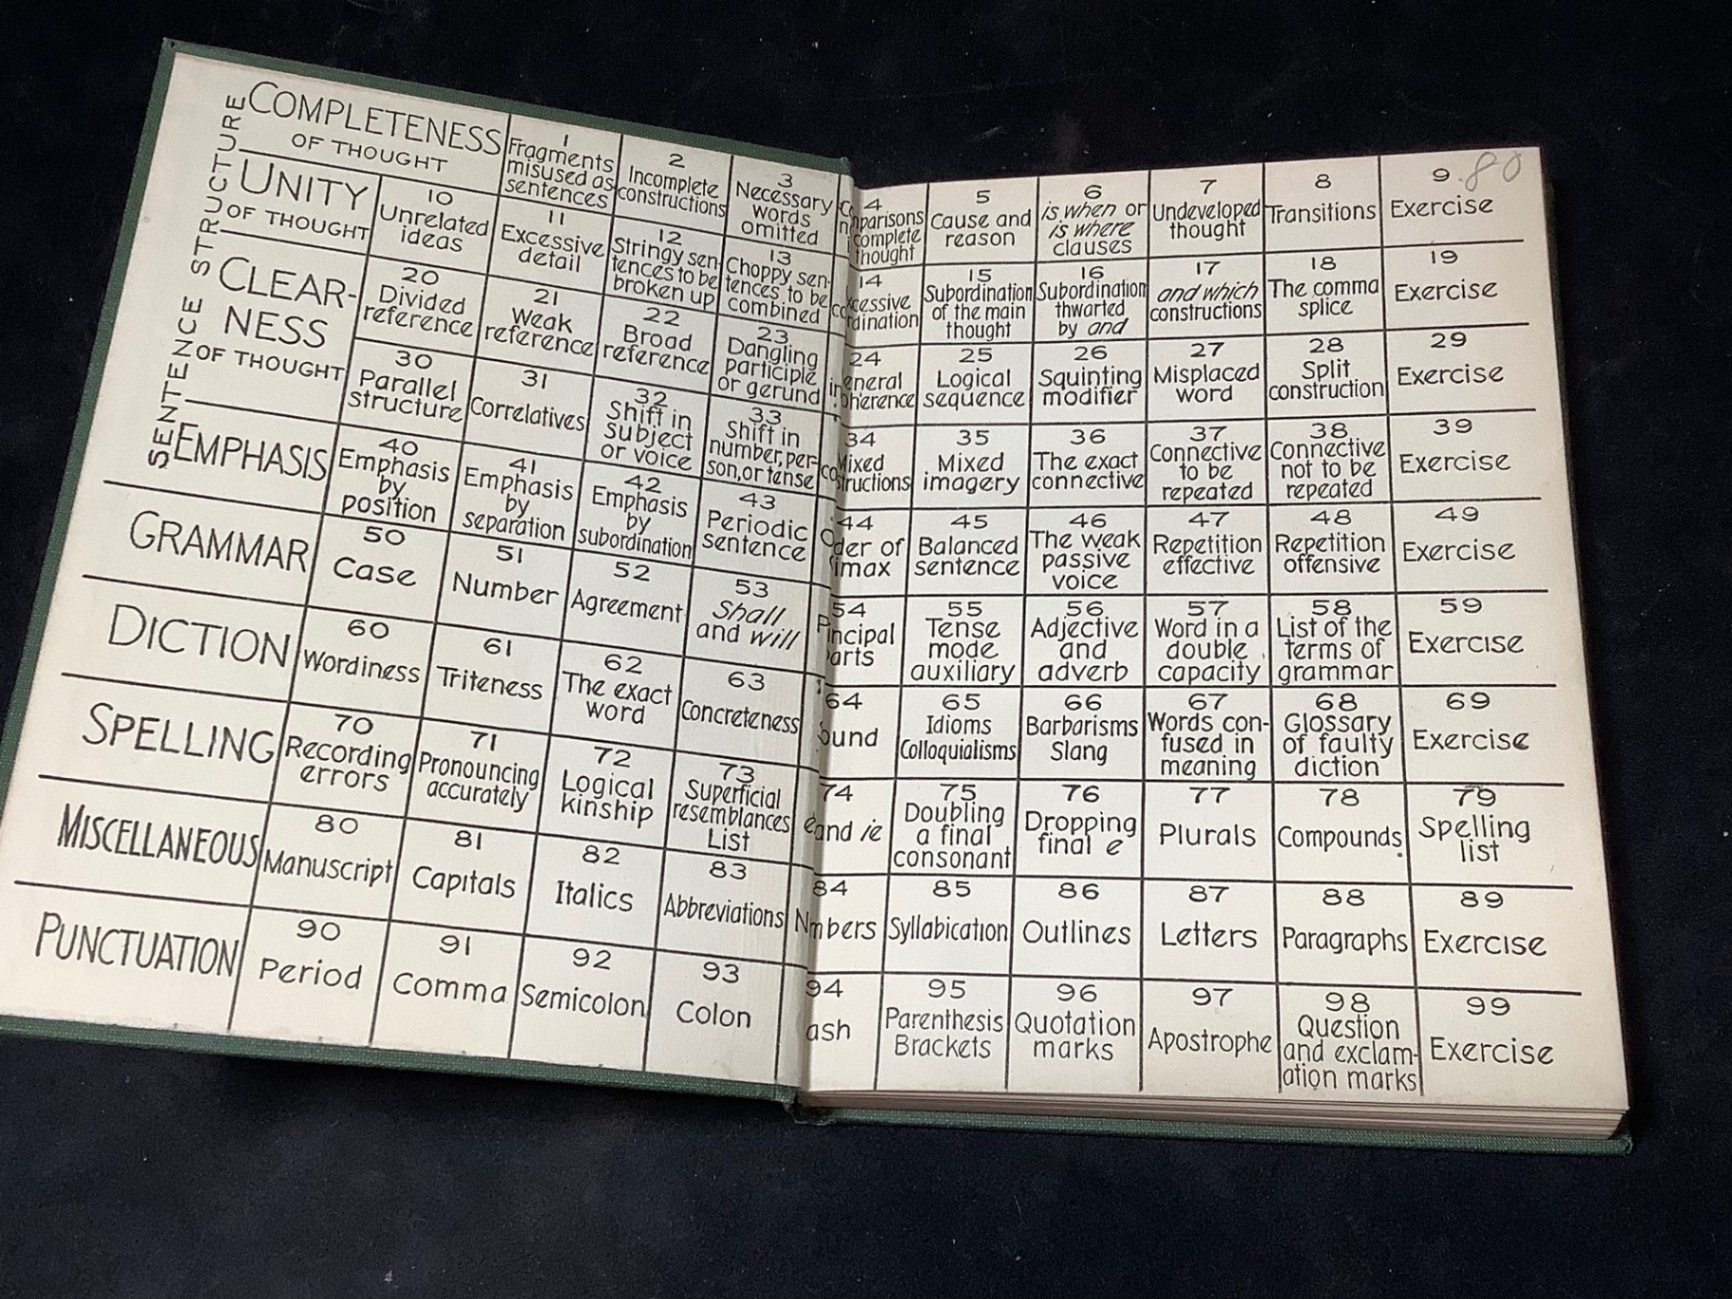 SENTENCE STRUCTURE
COMPLETENESS
OF THOUGHT
1
Fragments
misused as
sentences
2
Incomplete
constructions
3
Necessary
words
omitted
4
mparisons
complete
thought
5
Cause and
reason
6
is when or
is where
clauses
7
Undeveloped
thought
8
Transitions
9
Exercise
80
UNITY
OF THOUGHT
10
Unrelated
ideas
11
Excessive
detail
12
Stringy sen-
tences to be
broken up
13
Choppy sen-
tences to be
combined
14
cessive
dination
15
Subordination
of the main
thought
16
Subordination
thwarted
by and
17
and which
constructions
18
The comma
splice
19
Exercise
CLEAR-
NESS
OF THOUGHT
20
Divided
reference
21
Weak
reference
22
Broad
reference
23
Dangling
participle
or gerund
24
eneral
oherence
25
Logical
sequence
26
Squinting
modifier
27
Misplaced
word
28
Split
construction
29
Exercise
30
Parallel
structure
31
Correlatives
32
Shift in
subject
or voice
33
Shift in
number, per-
son, or tense
34
Mixed
costructions
35
Mixed
imagery
36
The exact
connective
37
Connective
to be
repeated
38
Connective
not to be
repeated
39
Exercise
EMPHASIS
40
Emphasis
by
position
41
Emphasis
by
separation
42
Emphasis
by
subordination
43
Periodic
sentence
44
Oder of
imax
45
Balanced
sentence
46
The weak
passive
voice
47
Repetition
effective
48
Repetition
offensive
49
Exercise
GRAMMAR
50
Case
51
Number
52
Agreement
53
Shall
and will
54
Pincipal
arts
55
Tense
mode
auxiliary
56
Adjective
and
adverb
57
Word in a
double
capacity
58
List of the
terms of
grammar
59
Exercise
DICTION
60
Wordiness
61
Triteness
62
The exact
word
63
Concreteness
64
ound
65
Idioms
Colloquialisms
66
Barbarisms
Slang
67
Words con-
fused in
meaning
68
Glossary
of faulty
diction
69
Exercise
SPELLING
70
Recording
errors
71
Pronouncing
accurately
72
Logical
kinship
73
Superficial
resemblances
List
74
e and ie
75
Doubling
a final
consonant
76
Dropping
final e
77
Plurals
78
Compounds
79
Spelling
list
MISCELLANEOUS
80
Manuscript
81
Capitals
82
Italics
83
Abbreviations
84
Nmbers
85
Syllabication
86
Outlines
87
Letters
88
Paragraphs
89
Exercise
PUNCTUATION
90
Period
91
Comma
92
Semicolon
93
Colon
94
ash
95
Parenthesis
Brackets
96
Quotation
marks
97
Apostrophe
98
Question
and exclam-
ation marks
99
Exercise